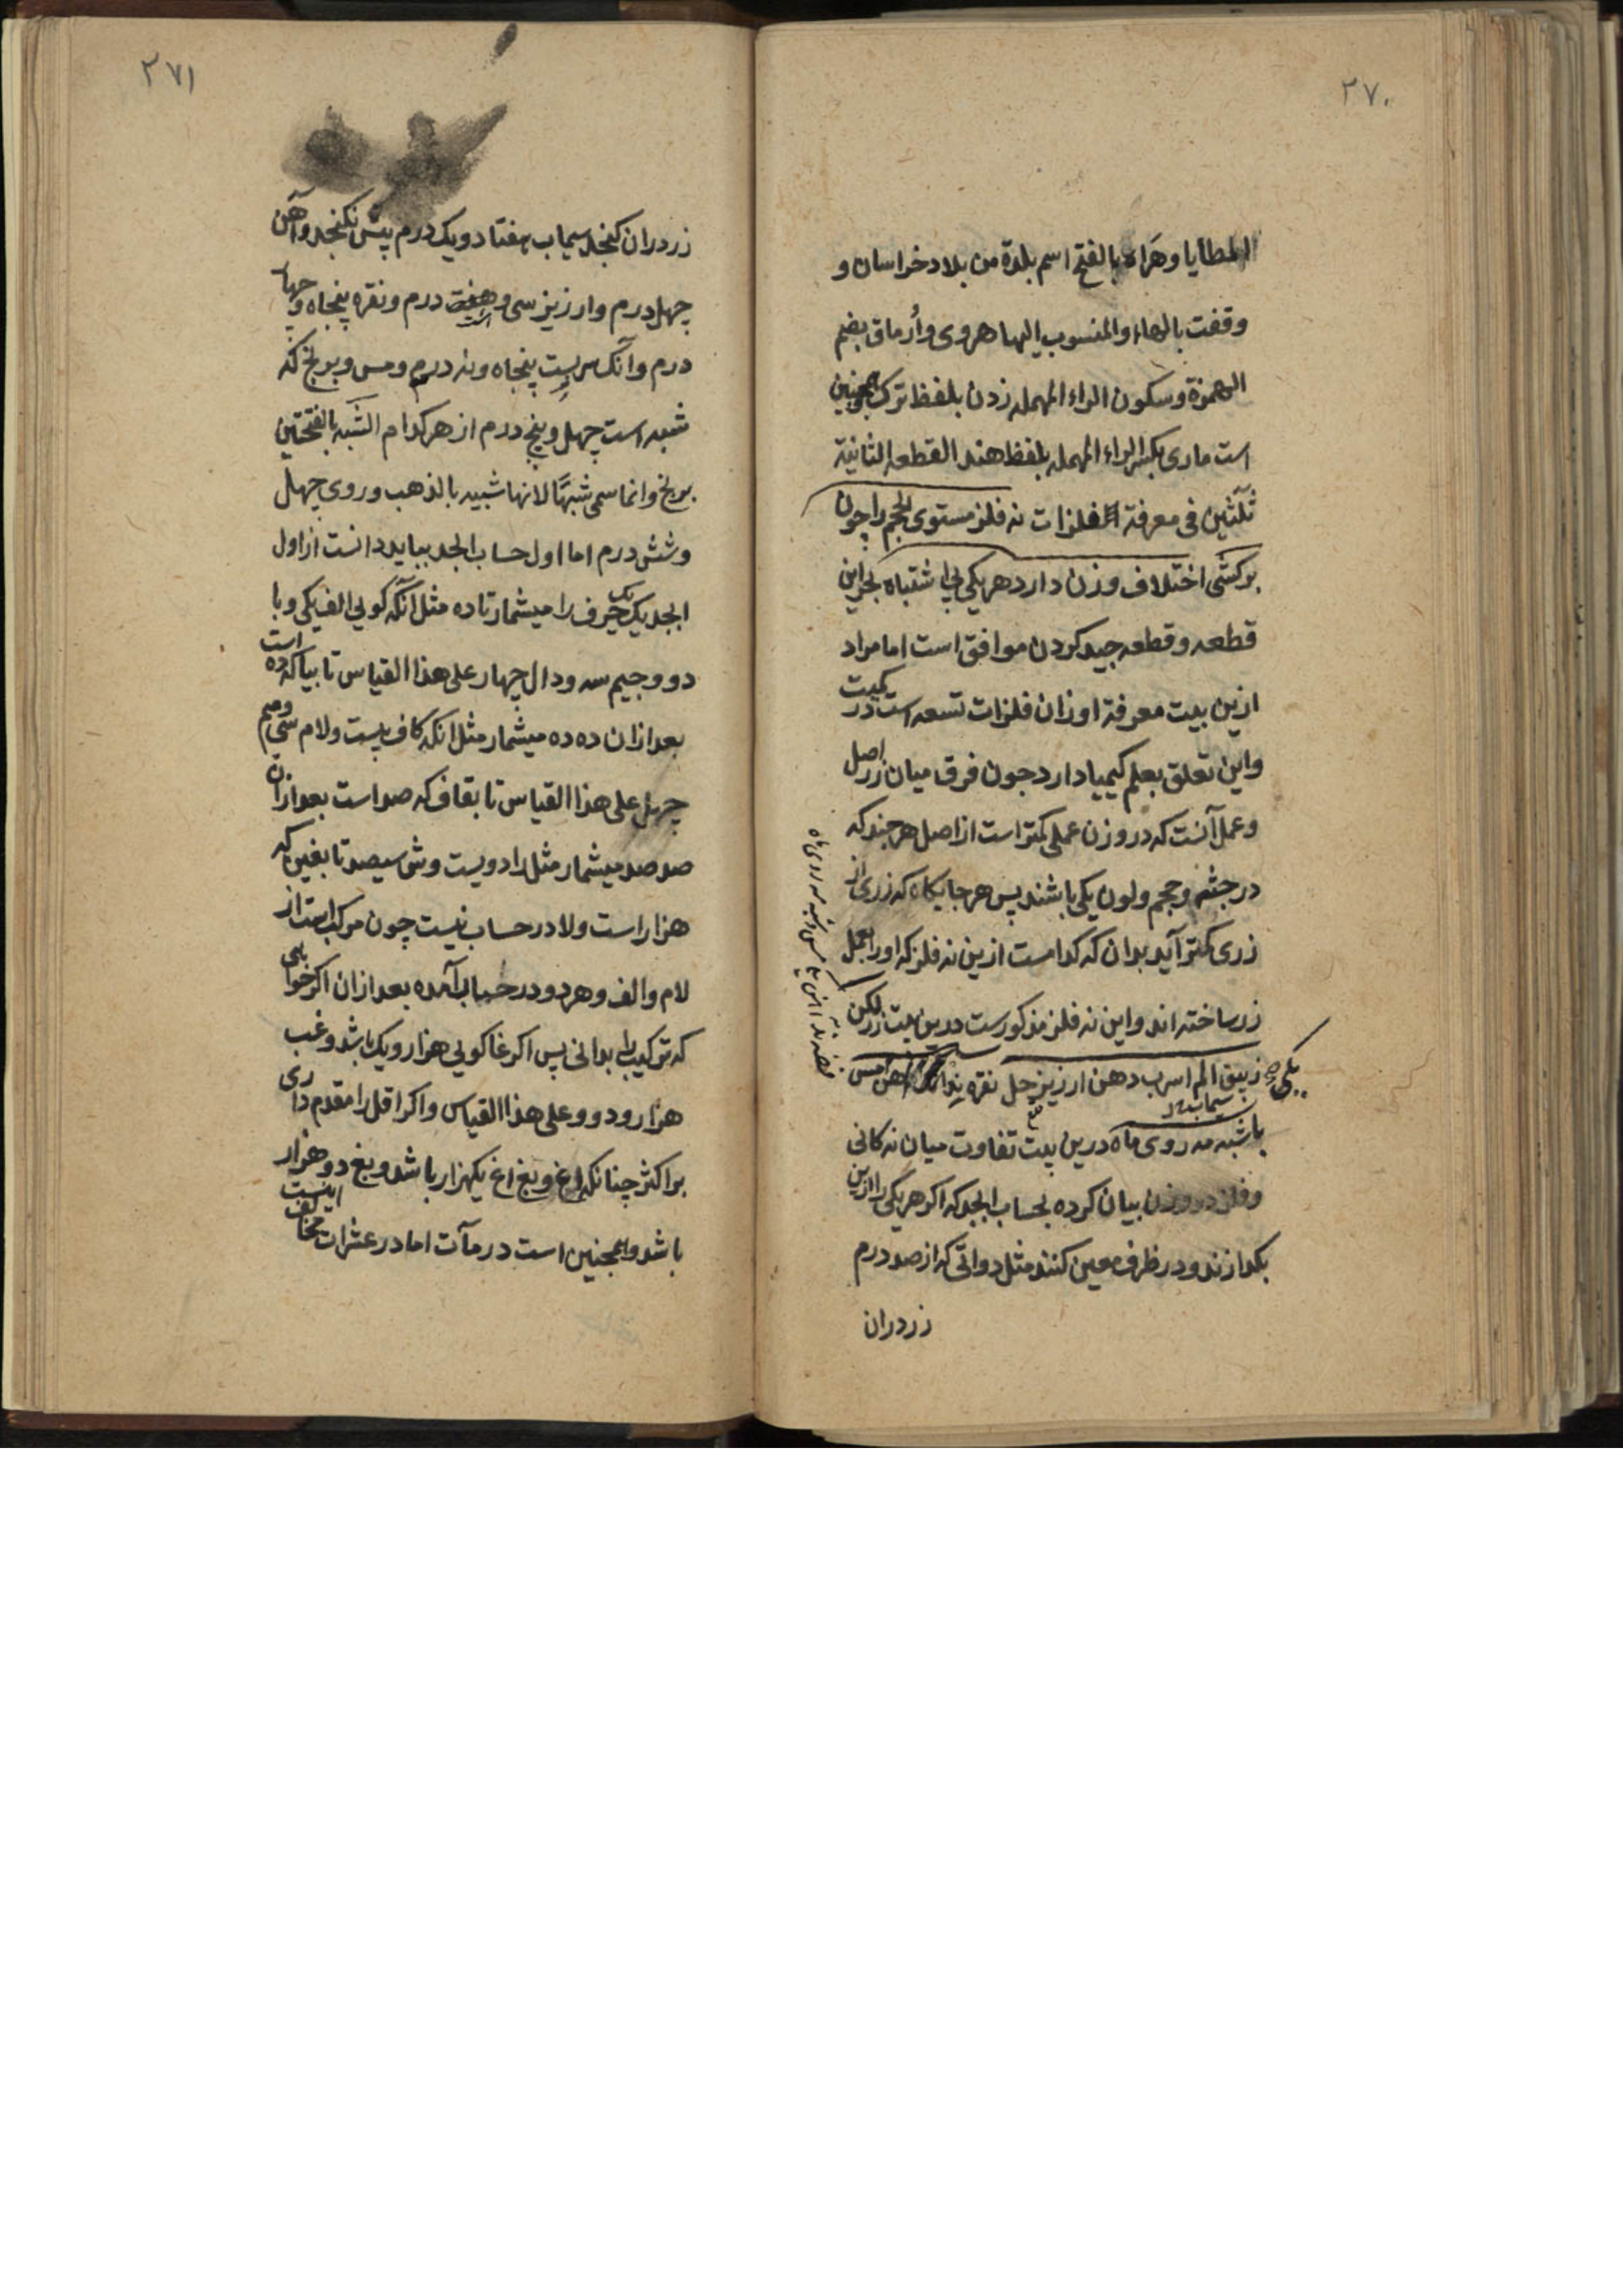 ٢٧٠
المطایا وهراة بالفتح اسم بلدة من بلاد خراسان و
وقفت بالهاء والمنسوب الیها هروی وأرماق بضم
الهمزة وسکون الراء المهمله زدن بلفظ ترک همچنین
است ماری بکسر الراء المهمله بلفظ هند القطعه الثانیة
ثلثین فی معرفة الفلزات نه فلز مستوی الحجم را چون
برکشی اختلاف وزن دارد هر یکی بی اشتباه بحر این
قطعه وقطعه جید کردن موافق است اما مراد
ازین بیت معرفة اوزان فلزات تسعه است در کمیت
واین تعلق بعلم کیمیا دارد جون فرق میان زر اصل
وعمل آنست که در وزن عملی کمتر است از اصل هر چند که
در جثه وحجم ولون یکی باشند پس هر جایکاه که زری از
زری کمتر آید بدان که کدامست ازین نه فلز که اورا بعمل
زر ساخته اند واین نه فلز مذکورست درین بیت زر لکن
زیبق الم اسرب دهن ارزیز حل نقره ند آهن یکی مس
باشبه مه روی ماه درین بیت تفاوت میان نه کانی
وفلز در وزن بیان کرده بحساب ابجد که اکر هر یکی را ازین
بکدازند ودر ظرف معین کنند مثل دواتی که از صد درم
زر دران
٢٧١
زر دران کنجد سیماب هفتاد ویک درم پیش نکنجد وآهن
چهل درم وارزیز سی وهفت است درم ونقره پنجاه وچهار
درم وآنک سربست پنجاه ونه درم ومس وبرنج که
شبه است چهل وپنج درم از هر کدام الشبه بالفتحتین
برنج وانما سمی شبها لانها شبیه بالذهب وروی چهل
وشش درم اما اول حساب ابجد بباید دانست از اول
ابجد یک یک حرف را میشمار تا ده مثل آنکه کویی الف یکی وبا
دو وجیم سه ودال چهار علی هذا القیاس تا بیا که ده است
بعد ازان ده ده میشمار مثل انکه کاف بیست ولام سی ومیم
چهل علی هذا القیاس تا بقاف که صد است بعد ازان
صد صد میشمار مثل را دویست وش سیصد تا بغین که
هزار است ولا در حساب نیست چون مرکب است از
لام والف وهر دو در حساب آمده بعد ازان اکر خواهی
که ترکیب را بدانی پس اکر غا کویی هزار ویک باشد وغب
هزار ودو وعلی هذا القیاس واکر اقل را مقدم داری
بر اکثر چنانکه اغ وبغ اغ یکهزار باشد وبغ دو هزار
باشد وهمچنین است در مآت اما در عشرات مخالف اینست